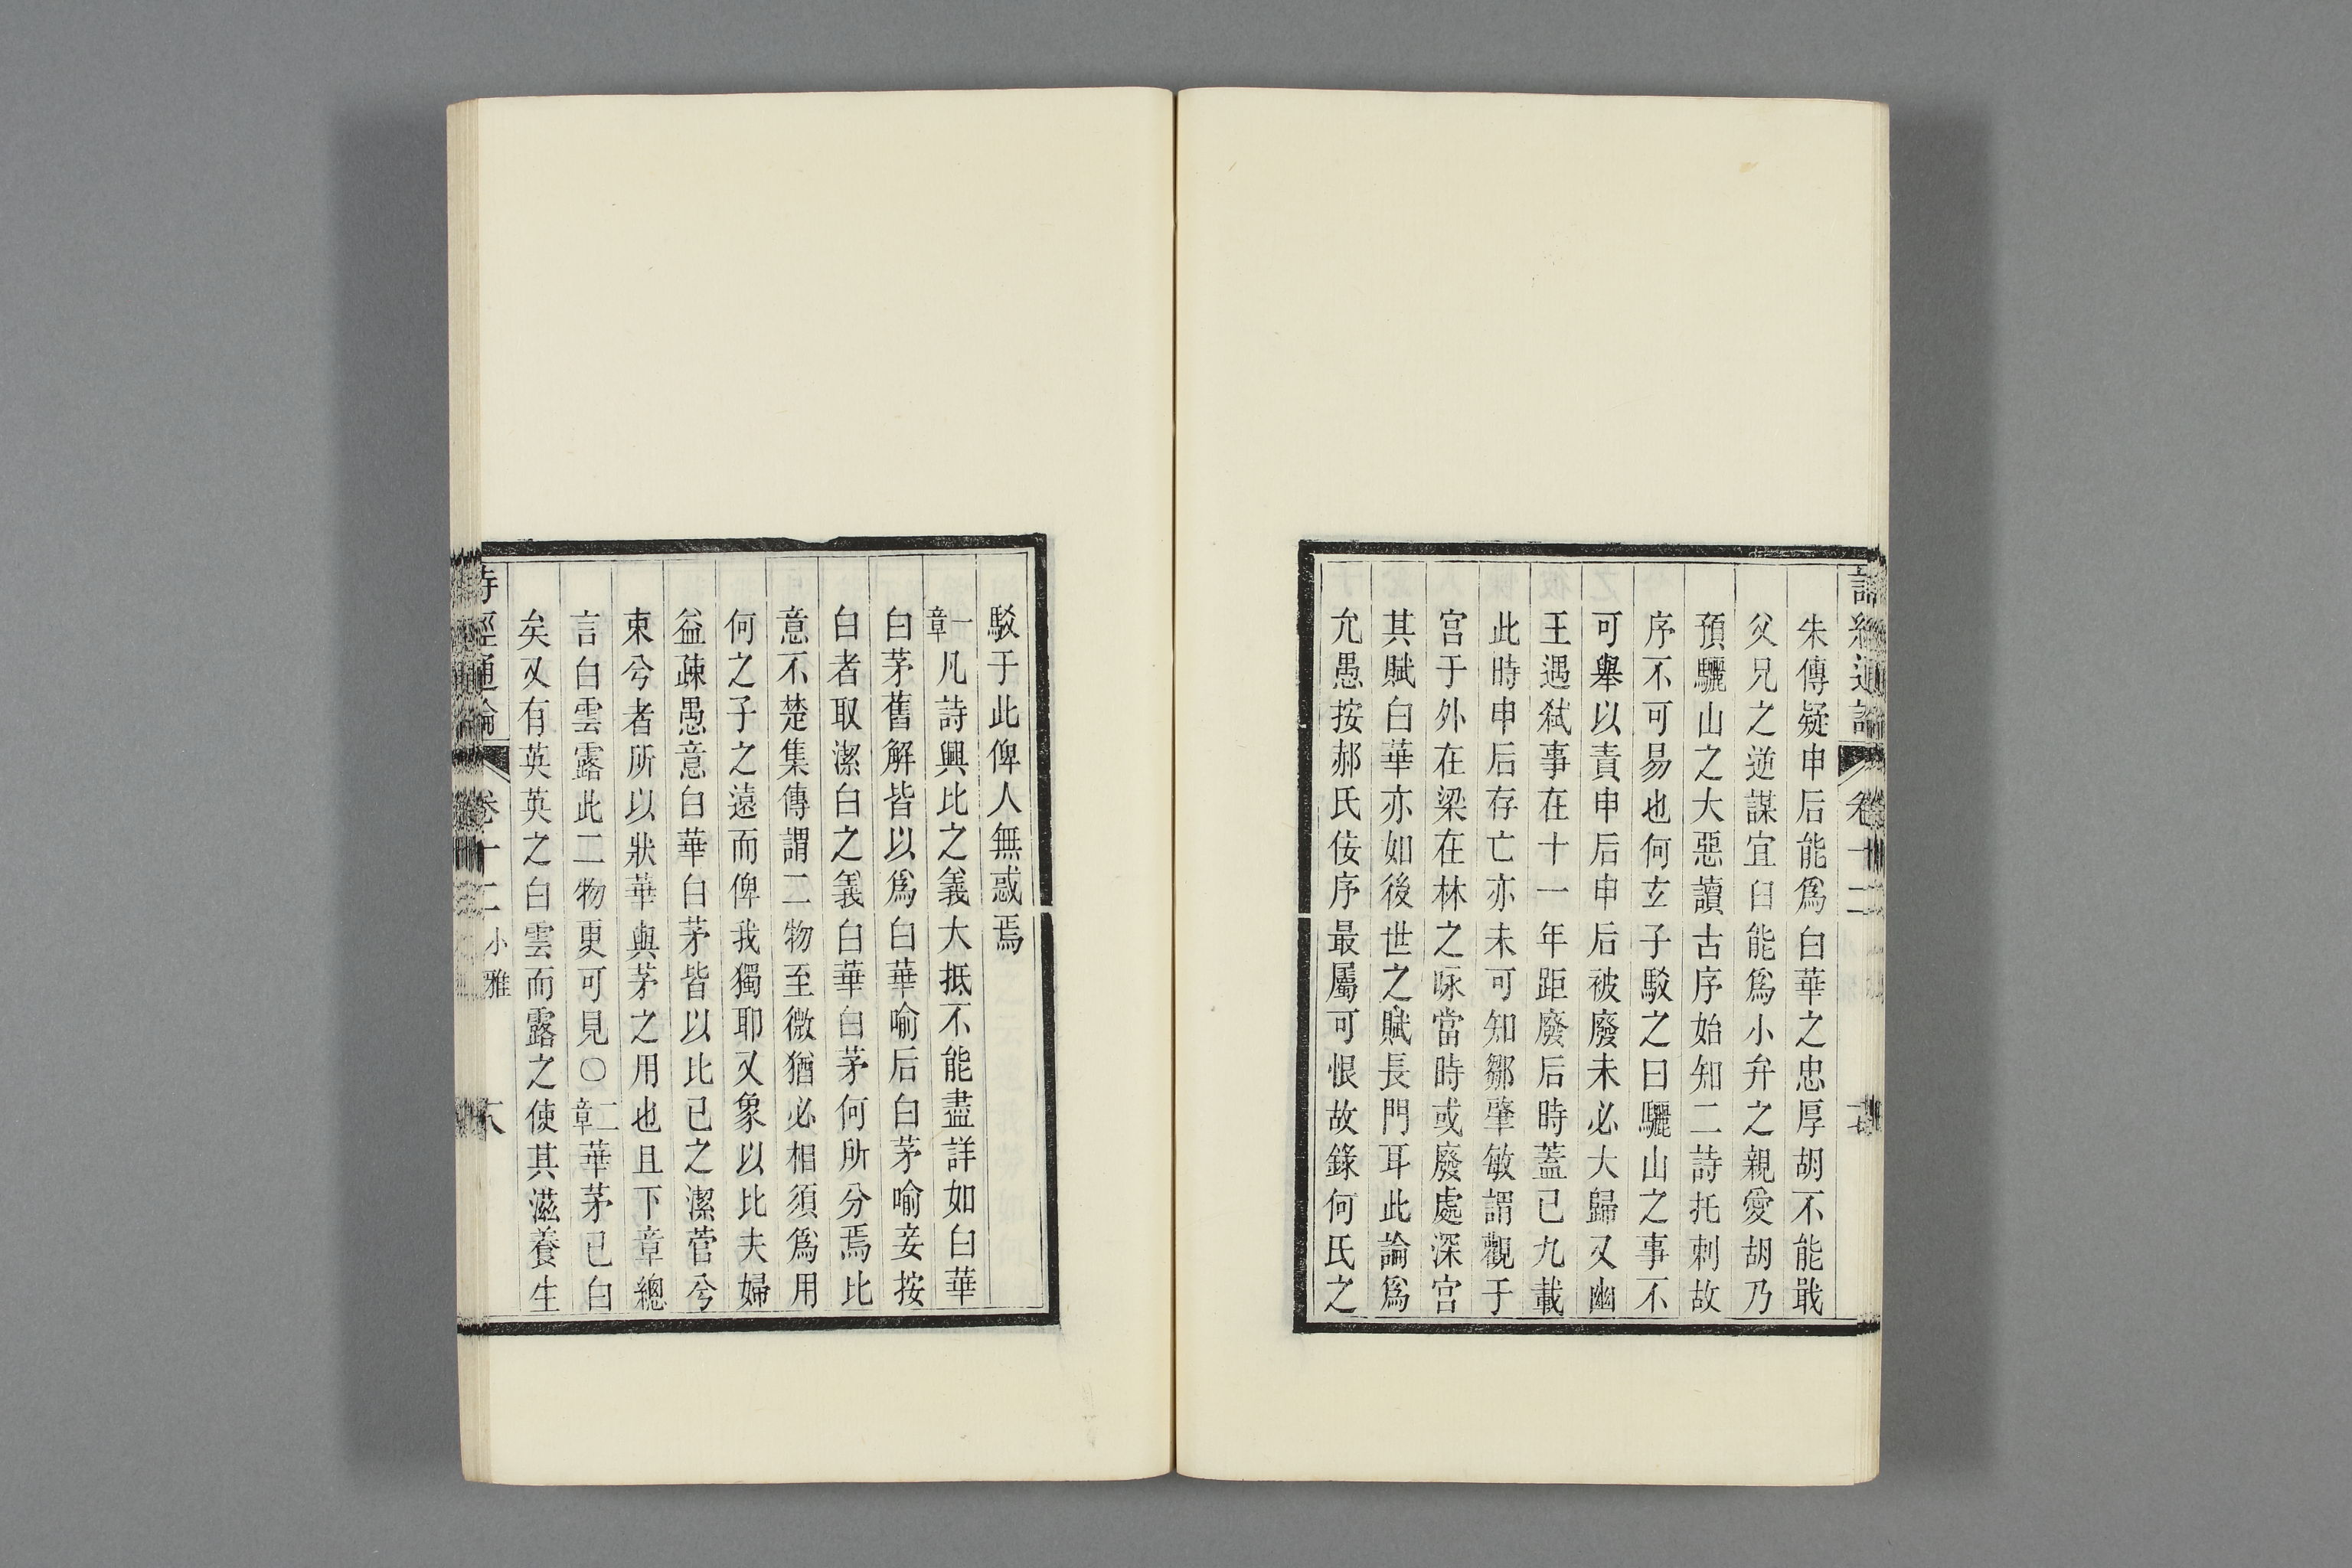 朱傳疑申后能爲白華之忠厚胡不能戢
父兄之逆謀宜臼能爲小弁之親愛胡乃
預驪山之大惡讀古序始知二詩托刺故
序不可易也何玄子駁之曰驪山之事不
可舉以責申后申后被廢未必大歸又幽
王遇弑事在十一年距廢后時蓋已九載
此時申后存亡亦未可知鄒肇敏謂觀于
宮于外在梁在林之咏當時或廢處深宮
其賦白華亦如後世之賦長門耳此論爲
允愚按郝氏佞序最屬可恨故錄何氏之
駁于此俾人無惑焉
一章凡詩興比之義大抵不能盡詳如白華
白茅舊解皆以爲白華喻后白茅喻妾按
白者取潔白之義白華白茅何所分焉比
意不楚集傳謂二物至微猶必相須爲用
何之子之遠而俾我獨耶又象以比夫婦
益疎愚意白華白茅皆以比已之潔菅兮
束兮者所以狀華與茅之用也且下章總
言白雲露此二物更可見○二章華茅已白
矣又有英英之白雲而露之使其滋養生
詩經通論
卷十二
小雅